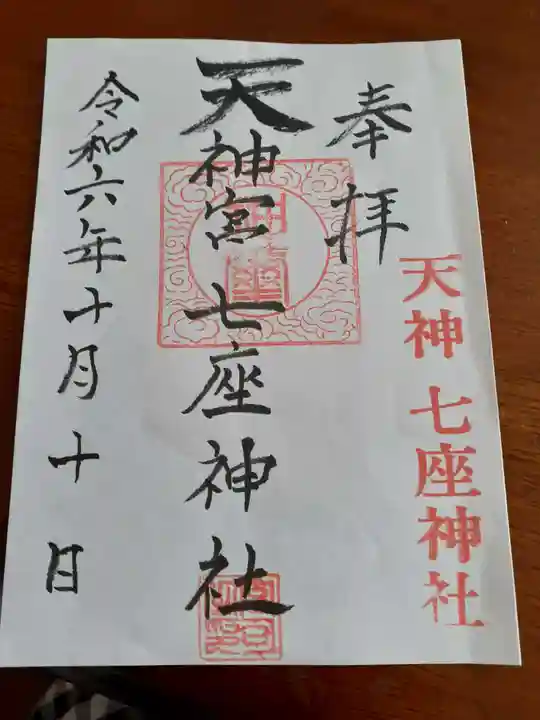 奉拝
天神七座神社
天神宮七座神社
令和六年十月十日